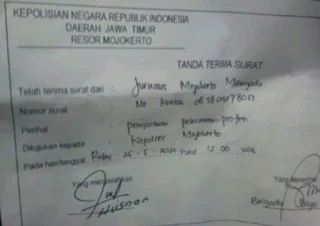 KEPOLISIAN NEGARA REPUBLIK INDONESIA
DAERAH JAWA TIMUR
RESOR MOJOKERTO
TANDA TERIMA SURAT
Telah terima surat dari : Jurnalis Mojokerto
Nomor surat : No kontak
Perihal : profesi
Ditujukan kepada : Kapolres Mojokerto
Pada hari/tanggal : Rabu 25-5-2021 Pukul 12.00 WIB
Yang menyerahkan
Yang Menerima